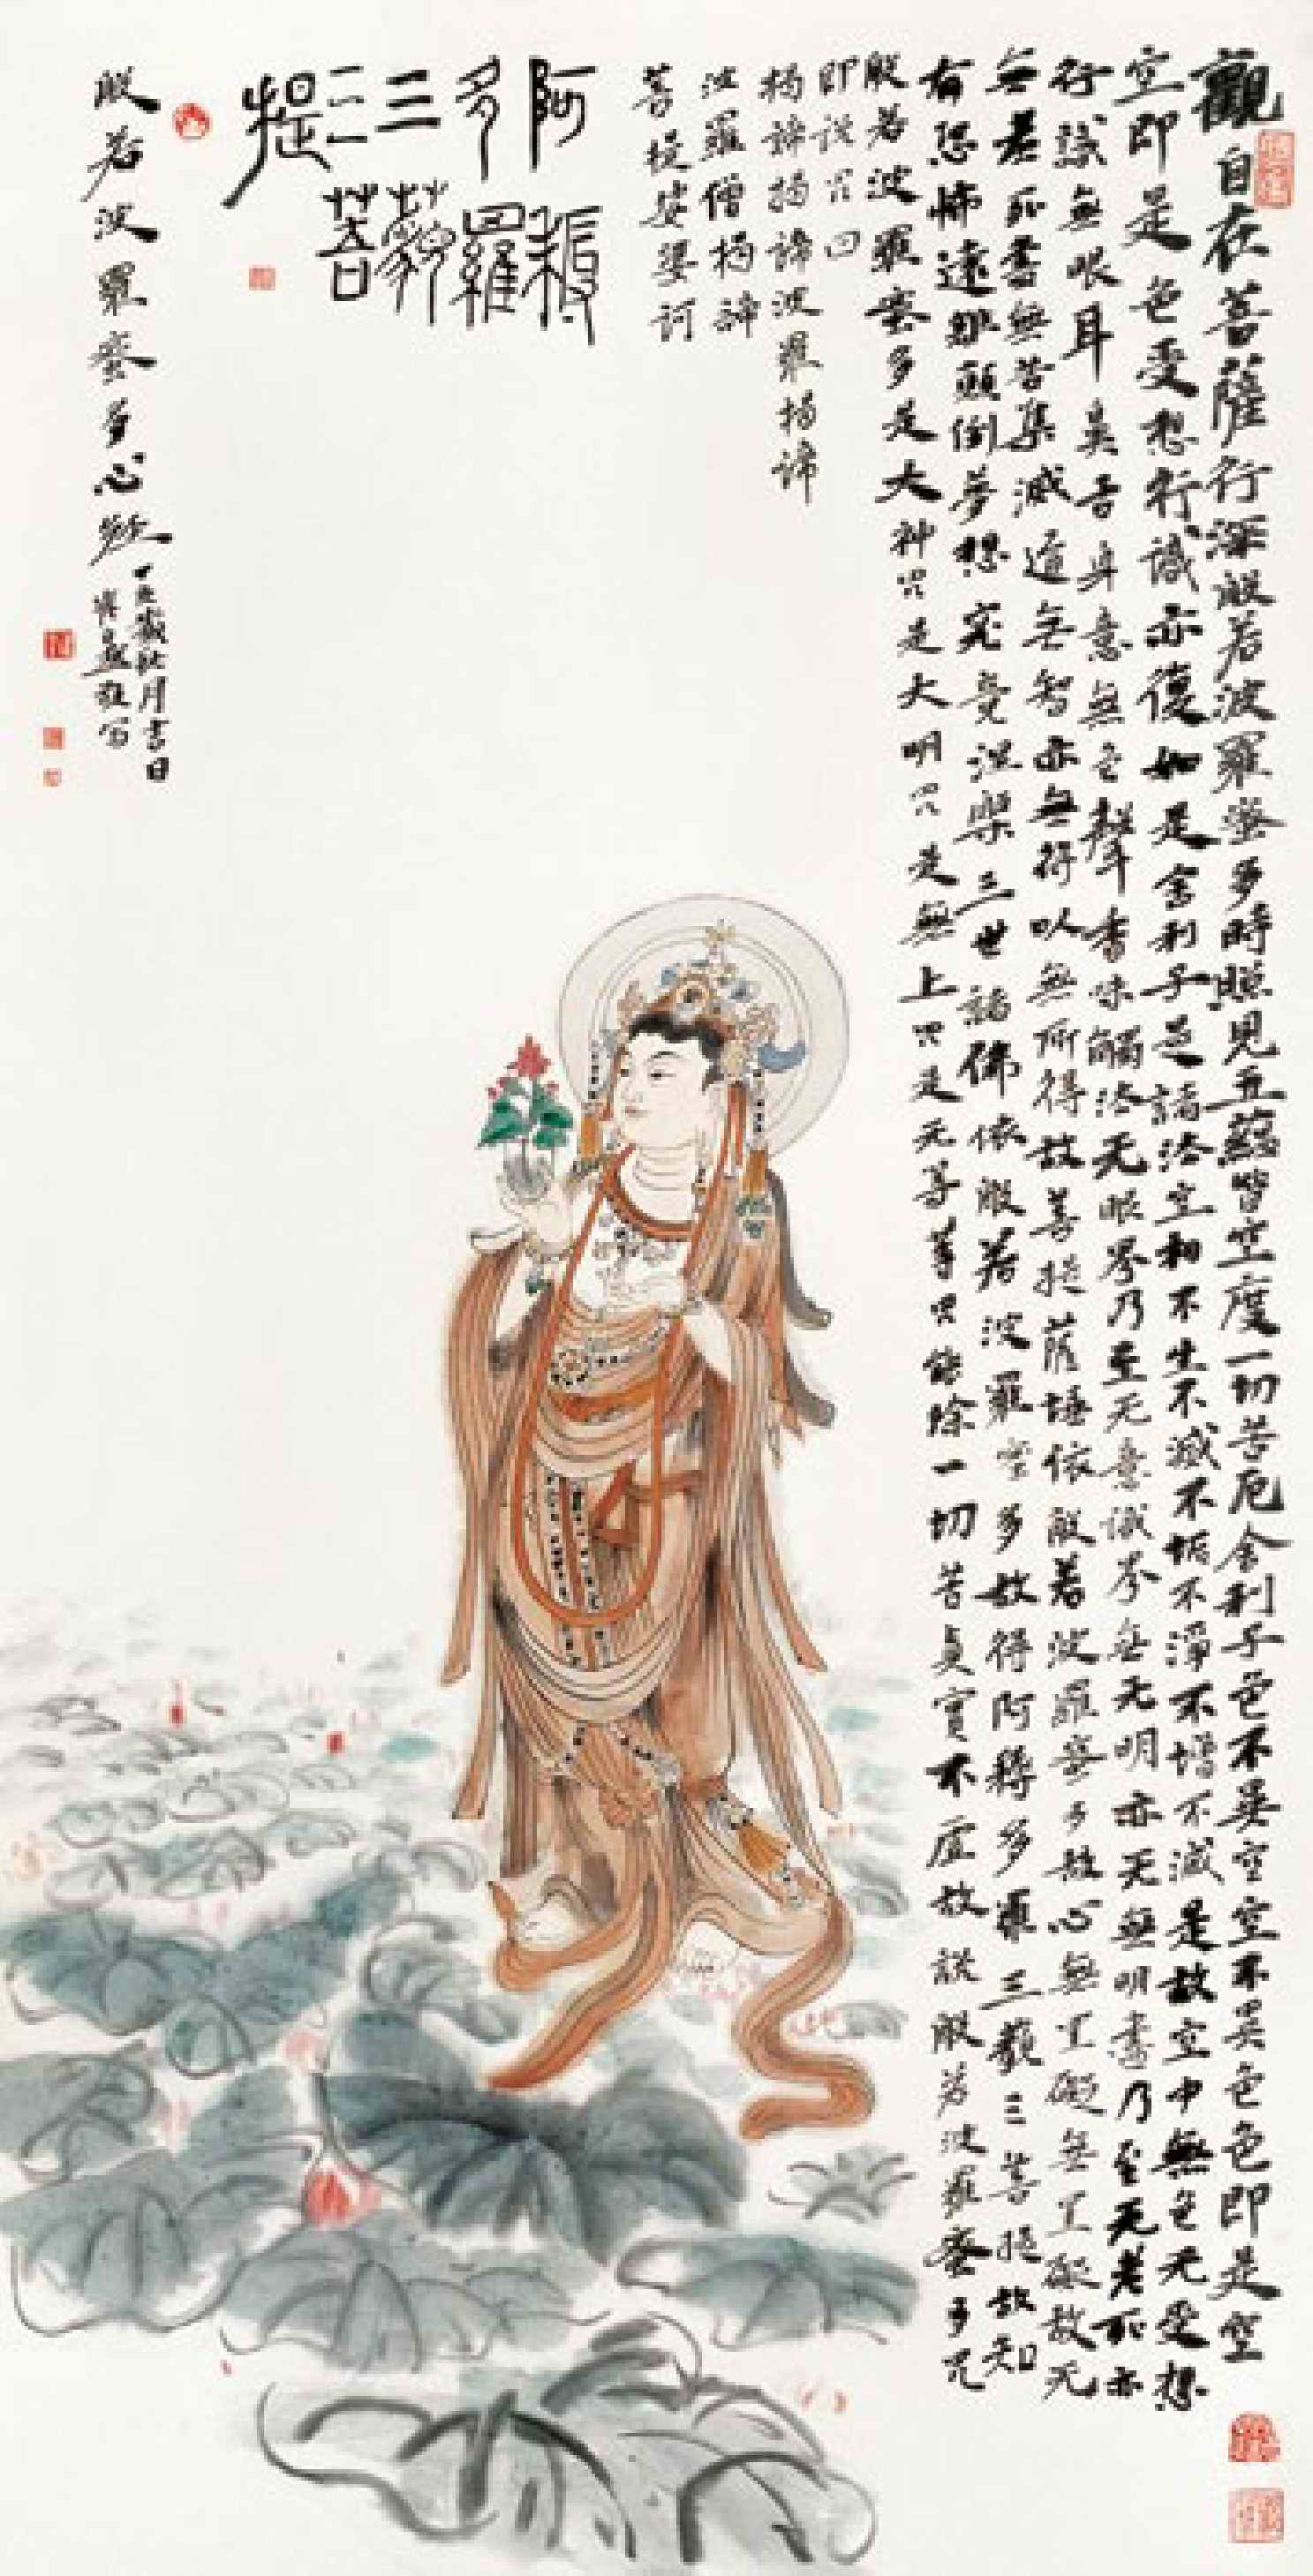 觀自在菩薩行深般若波羅蜜多時照見五蘊皆空度一切苦厄舍利子色不異空空不異色色即是空
空即是色受想行識亦復如是舍利子是諸法空相不生不滅不垢不淨不增不減是故空中無色无受想
行識無眼耳鼻舌身意無色聲香味觸法无眼界乃至无意識界無无明亦无無明盡乃至无老死亦
無老死盡無苦集滅道無智亦無得以無所得故菩提薩埵依般若波羅蜜多故心無罣礙無罣礙故无
有恐怖遠離顛倒夢想究竟涅槃三世諸佛依般若波羅蜜多故得阿耨多羅三藐三菩提故知
般若波羅蜜多是大神咒是大明咒是無上咒是无等等咒能除一切苦真實不虛故說般若波羅蜜多咒
即說咒曰
揭諦揭諦波羅揭諦
波羅僧揭諦
菩提娑婆訶
阿耨
多羅
三藐
三菩
提
般若波羅蜜多心經
歲秋月吉日